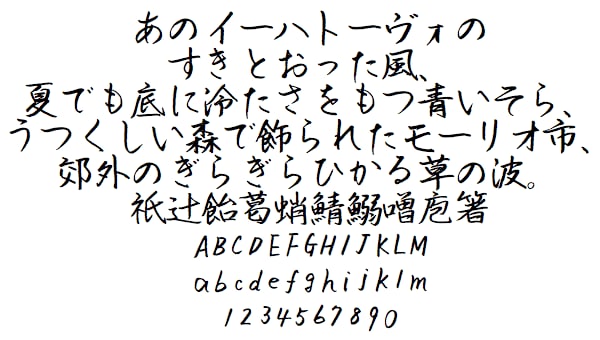 あのイーハトーヴォの
すきとおった風、
夏でも底に冷たさをもつ青いそら、
うつくしい森で飾られたモーリオ市、
郊外のぎらぎらひかる草の波。
祇辻飴葛蛸鯖鰯噌庖箸
ABCDEFGHIJKLM
abcdefghijklm
1234567890